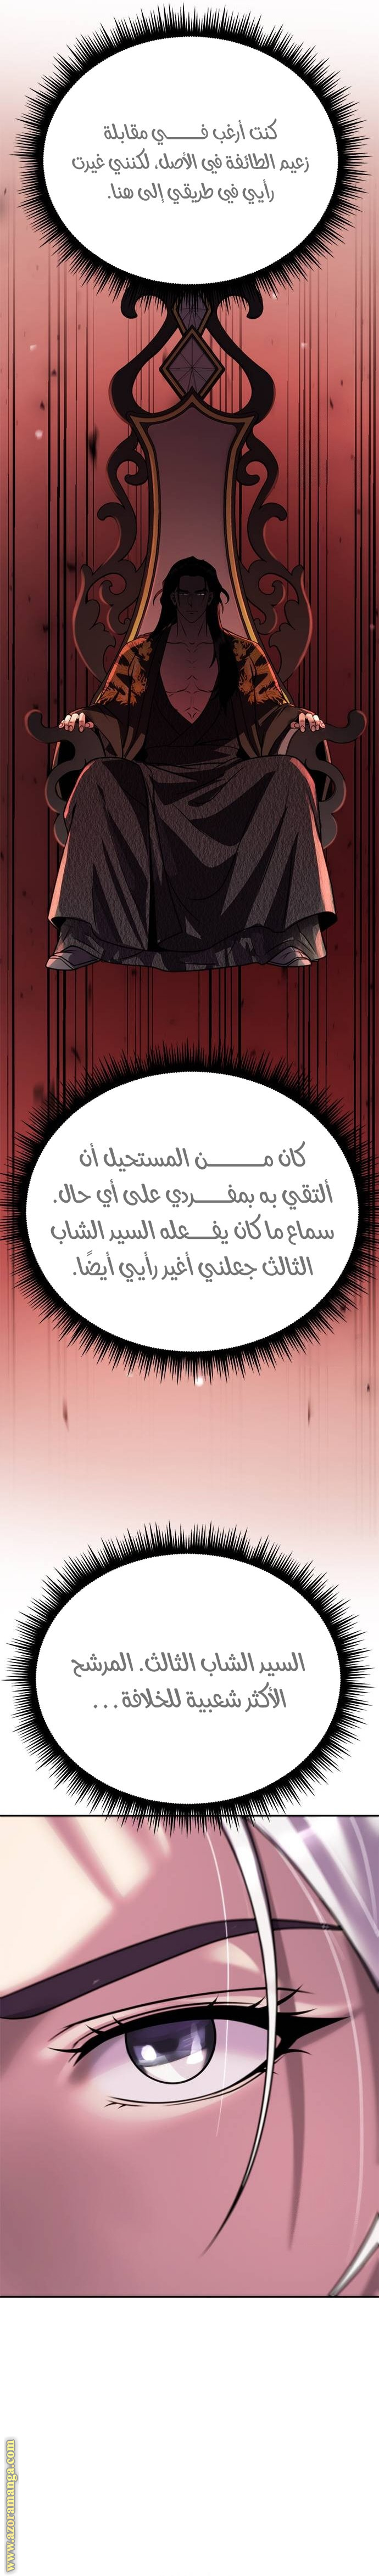 كنت أرغب في مقابلة
زعيم الطائفة في الأصل، لكنني غيرت
رأيي في طريقي إلى هنا.
كان من المستحيل أن
ألتقي به بمفردي على أي حال.
سماع ما كان يفعله السيد الشاب
الثالث جعلني أغير رأيي أيضًا.
السيد الشاب الثالث. المرشح
الأكثر شعبية للخلافة...
www.azoramanga.com